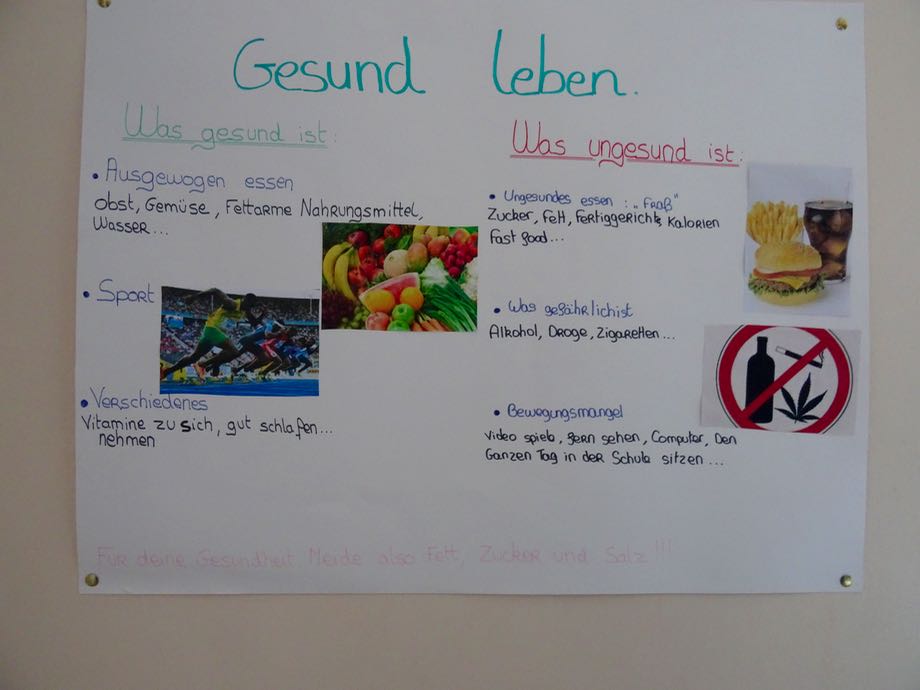 Gesund leben.
Was gesund ist:
• Ausgewogen essen
Obst, Gemüse, Fettarme Nahrungsmittel,
Wasser...
• Sport
• Verschiedenes
Vitamine zu sich, gut schlafen...
nehmen
Was ungesund ist:
• Ungesundes essen : „Fraß"
Zucker, Fett, Fertiggerichte, Kalorien
Fast food...
• Was gefährlichist
Alkohol, Droge, Zigaretten...
• Bewegungsmangel
Video spiele, fern sehen, Computer, Den
Ganzen Tag in der Schule sitzen...
Für deine Gesundheit Meide also Fett, Zucker und Salz!!!